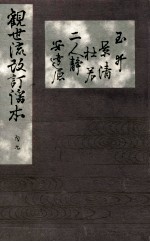 玉井
景清
杜若
二人静
安達原
観世流改訂謡本